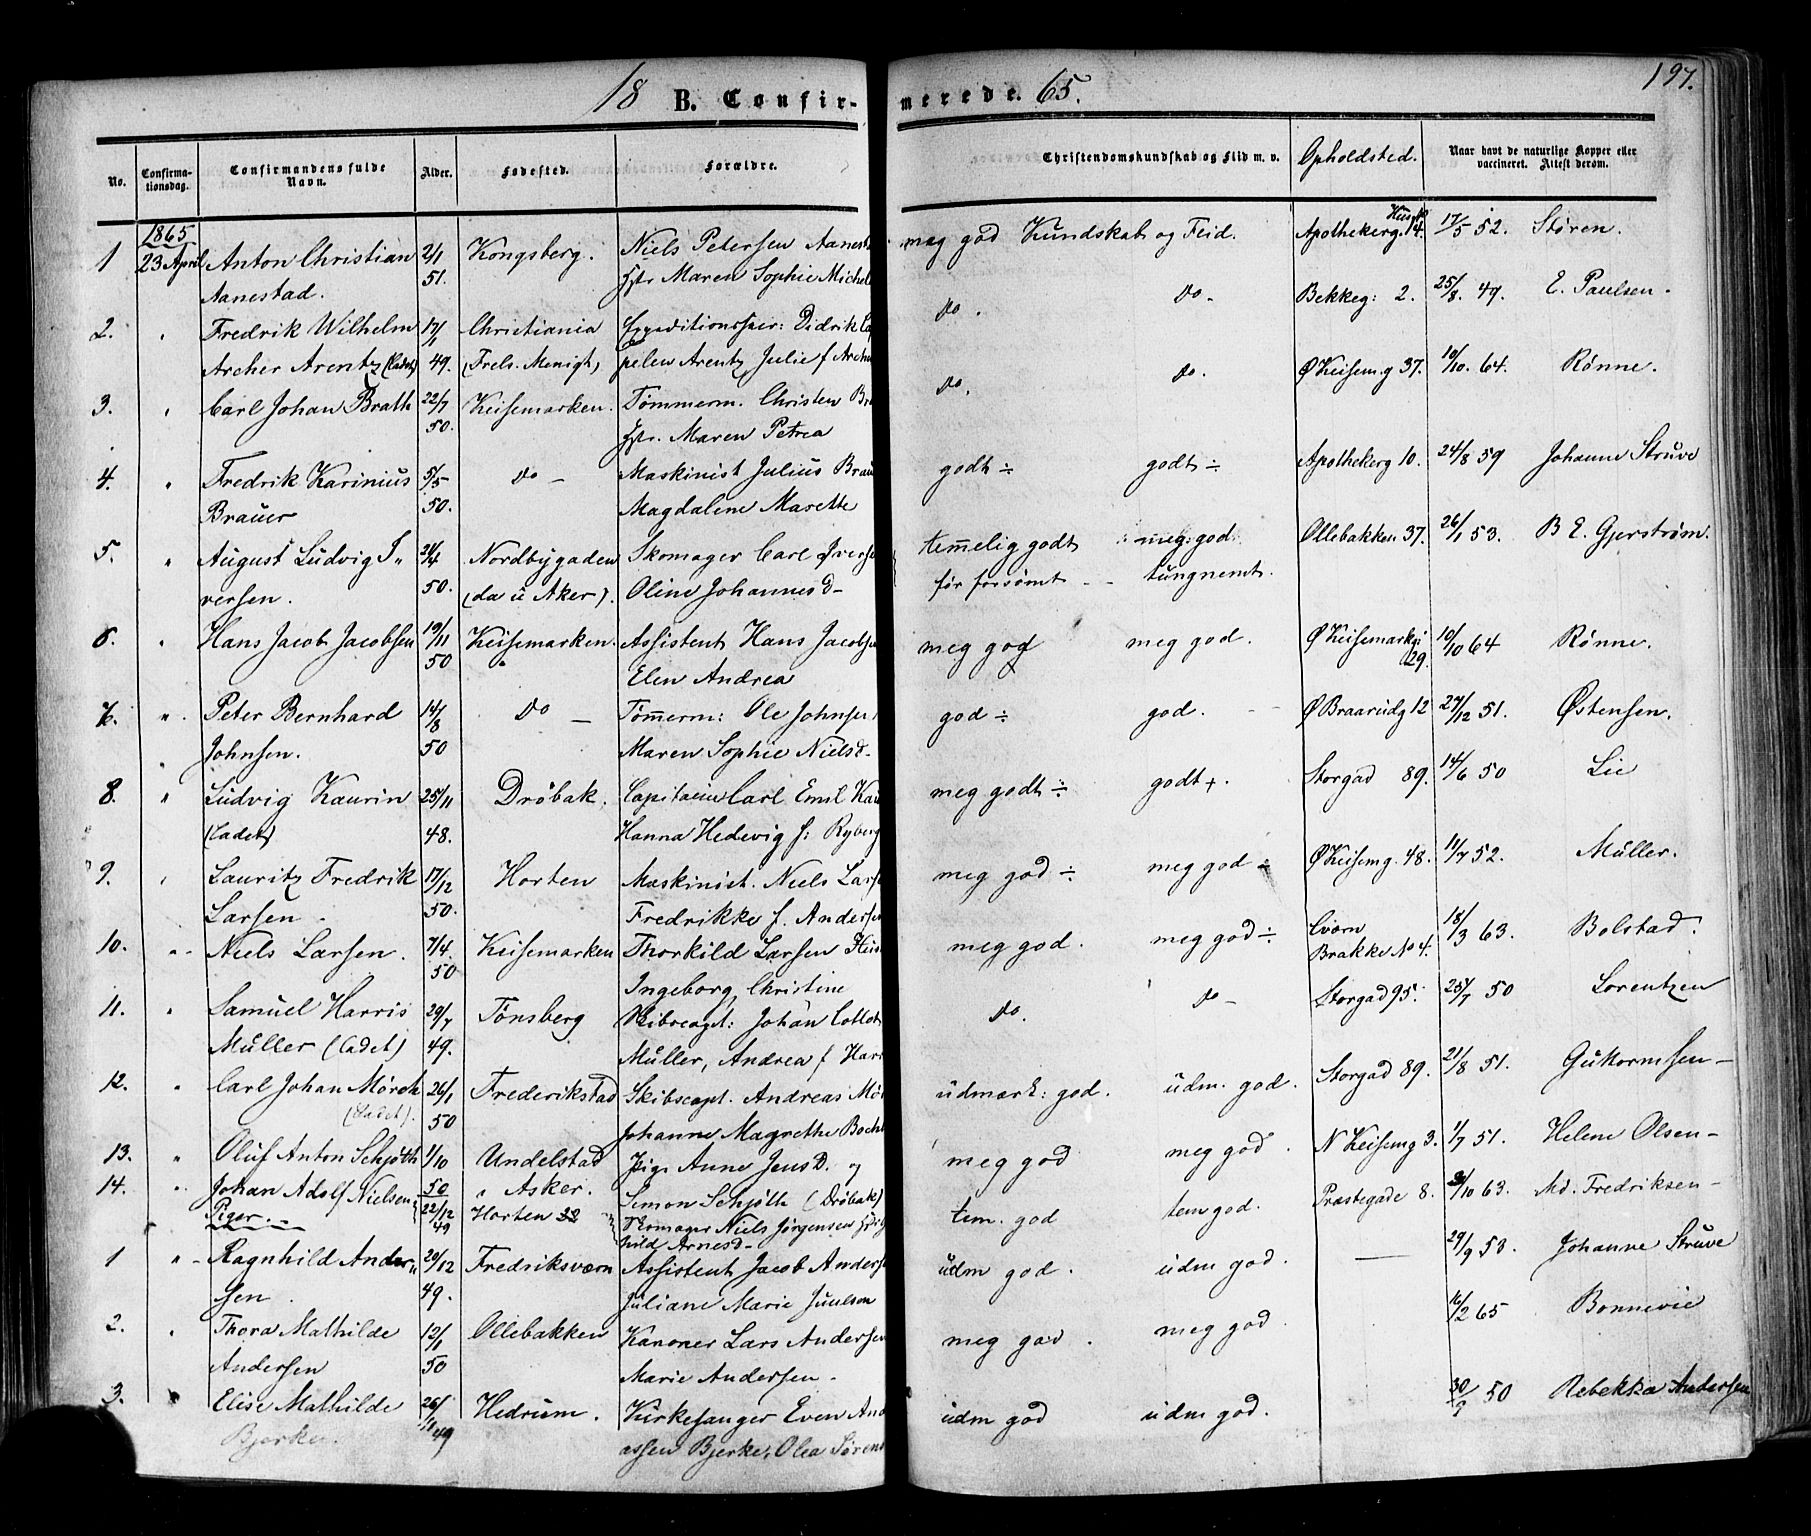 18 B. Confirmerede. 65.
197.
No.
Confirmationsdag.
Confirmandens fulde Navn.
Alder.
Fødested.
Forældre.
Christendomskundskab og Flid m. v.
Opholdsted.
Naar havt de naturlige Kopper eller vaccineret. Attest derom.
1865
1 23 April Anton Christian 2/1 Kongsberg. Niels Petersen Aanest meg god Kundskab og Flid. Apothekerg. 14. 17/5 52. Støren.
Aanestad. 51. Maren Sophie Michel
2. " Fredrik Wilhelm 17/1 Christiania Expeditionssecr: Didrik Cap do. do. Bekkeg: 2. 25/8. 49. E. Paulsen.
Archer Arentz (Cadet) 49. (Frels. Menigh) pelen Arentz, Julie f Arch
3. " Carl Johan Brath 22/7 Keisemarken. Tømmerm. Christen Br do. do. Ø Keisemg 37. 10/10. 64. Rønne.
50. Maren Petrea
4. " Fredrik Karinius 5/5 do — Maskinist Julius Brau godt ÷ godt ÷ Apothekerg 10. 24/8 59 Johanne Struve
Brauer 50. Magdalene Marette
5. " August Ludvig I„ 4 Nordbygaden Skomager Carl Ivers temmelig godt meg: god: Ollebakken 37. 26/1 53. B E. Gjerstrøm.
versen. 50. (da u Aker). Oline Johannesd- før forsømt — tungnemt.
6. " Hans Jacob Jacobsen 19/11 Keisemarken. Assistent Hans Jacobse meg god meg god. Ø Keisemarkg: 29. 10/10 64 Rønne.
50 Elen Andrea
7. " Peter Bernhard 14/8 do — Tømmerm: Ole Johnsen god ÷ god. Ø Braarudg 12 27/12 51. Østensen.
Johnsen. 50 Maren Sophie Nielsd-
8. " Ludvig Kaurin 25/11 Drøbak. Capitain Carl Emil Kau meg godt ÷ godt +. Storgad 89. 14/6 50 Lie
(Cadet) 48. Hanna Hedevig f: Ryberg
9. " Lauritz Fredrik 17/12 Horten Maskinist. Niels Lars meg god ÷ meg god ÷ Ø Keisemg. 48. 11/7 52. Müller.
Larsen 50. Fredrikke f. Anderse
10. " Niels Larsen. 7/4. Keisemarken Thorkild Larsen meg god. meg god ÷ Cvarn Brakke No 4. 18/3 63. Bolstad.
50 Ingeborg Christine
11. " Samuel Harris 29/7 Tønsberg Skibscapt: Johan do. do — Storgad 95. 25/7 50 Lorentzen
Müller (Cadet) 49. Müller, Andrea f Har
12. " Carl Johan Mørch 26/1 Frederikstad Skibscapt. Andreas Mø udmærk: god. udm. god. Storgad 89. 21/8 51. Guttormsen—
(Cadet). 50 Johanne Magrethe
13. " Oluf Anton Schjøth 1/10 Undelstad Pige Anne Jensd. og meg god meg god. N Keisemg 3. 1/7 51. Helene Olsen—
50 " Asker. Simon Schjøth (Drøbak)
14. " Johan Adolf Nielsen 22/12 49 Horten Skomager Niels Jørgensen tem. god tem god. Præstegade 8. /10 63. Md. Fredriksen—
hild Arnesd-
Piger.
1 " Ragnhild Ander„ 29/12 Fredriksværn Assistent Jacob Anders udm god. udm god. — 29/9 53. Johanne Struve
sen 49. Juliane Marie Juulson
2. " Thora Mathilde 12/1 Ollebakken Kanoner Lars Andersen meg god. meg god 16/2 65 Bonnevie
Andersen 50 Marie Andersen.
3. " Elise Mathilde 26/11 49 Hedrum. Kirkesanger Even And udm god udm god. 30/9 50 Rebekka Andersen
Bjerke. assen Bjerke, Olea Sørens